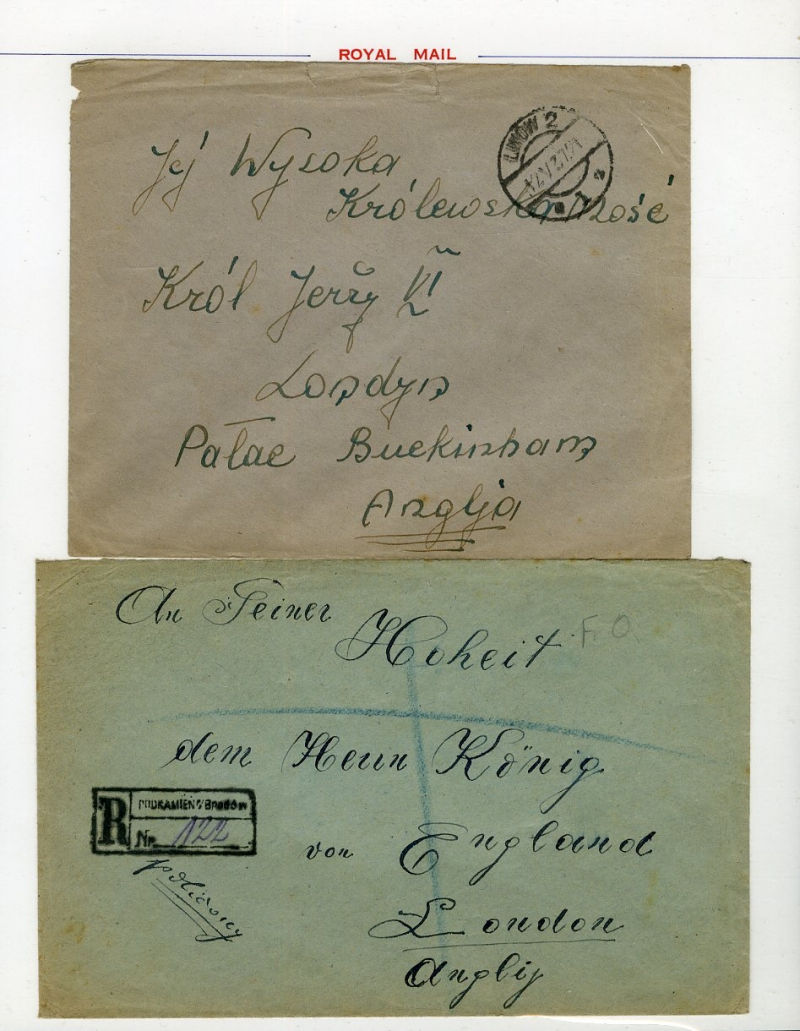 ROYAL MAIL
Jej Wysoka
Królewska Mość
Król Jerży VI
Londyn
Pałac Buckinham
Anglja
An Seiner
Hoheit
F.O.
dem Herrn König
R
PODKAMIEŃ Brodów
Nr. 122
von England
London
Anglij